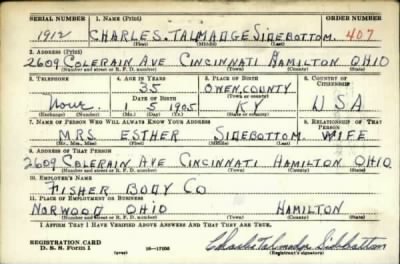 SERIAL NUMBER 1. NAME (Print) ORDER NUMBER
1912 CHARLES. TALMADGE SIDEBOTTOM. 407
(First) (Middle) (Last)
2. ADDRESS (Print)
2609 COLERAIN AVE CINCINNATI HAMILTON OHIO
(Number and street or R. F. D. number) (Town) (County) (State)
3. TELEPHONE 4. AGE IN YEARS 5. PLACE OF BIRTH 6. COUNTRY OF CITIZENSHIP
35 OWEN, COUNTY
DATE OF BIRTH (Town or county)
none. 1 5 1905 KY USA
(Exchange) (Number) (Mo.) (Day) (Yr.) (State or country)
7. NAME OF PERSON WHO WILL ALWAYS KNOW YOUR ADDRESS 8. RELATIONSHIP OF THAT PERSON
MRS. ESTHER SIDEBOTTOM. WIFE
(Mr., Mrs., Miss) (First) (Middle) (Last)
9. ADDRESS OF THAT PERSON
2609 COLERAIN AVE CINCINNATI HAMILTON OHIO
(Number and street or R. F. D. number) (Town) (County) (State)
10. EMPLOYER'S NAME
FISHER BODY CO
11. PLACE OF EMPLOYMENT OR BUSINESS
NORWOOD OHIO HAMILTON
(Number and street or R. F. D. number) (Town) (County) (State)
I AFFIRM THAT I HAVE VERIFIED ABOVE ANSWERS AND THAT THEY ARE TRUE.
REGISTRATION CARD
D. S. S. Form 1 (over) 16—17105 Charles Talmadge Sidebottom
(Registrant's signature)